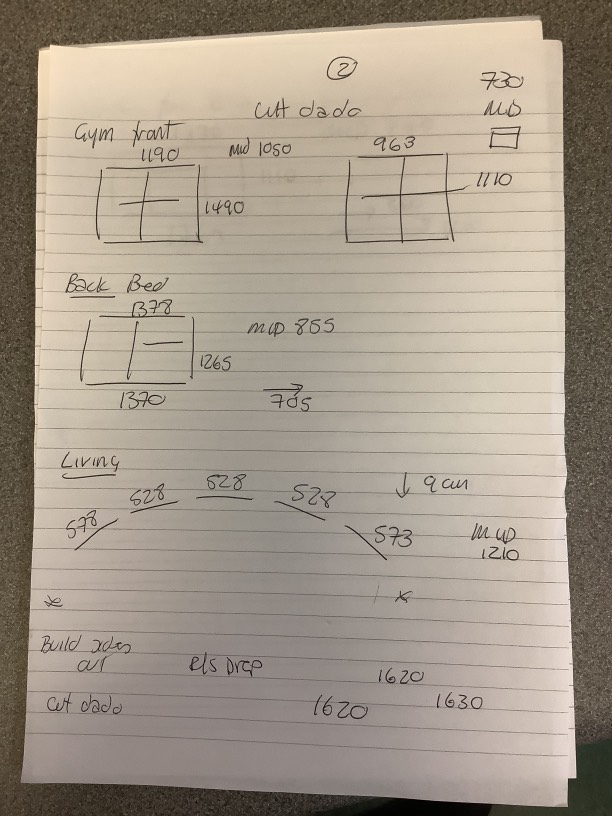 2
730
Cut dado
MD
Gym front
1190
Mid 1050
963
1110
1490
Back Bed
1378
mid 855
1265
1370
→
705
Living
528
528
528
578
↓ 9cm
573
Mid
1210
Build
out
R/S Drop
1620
Cut dado
1620
1630